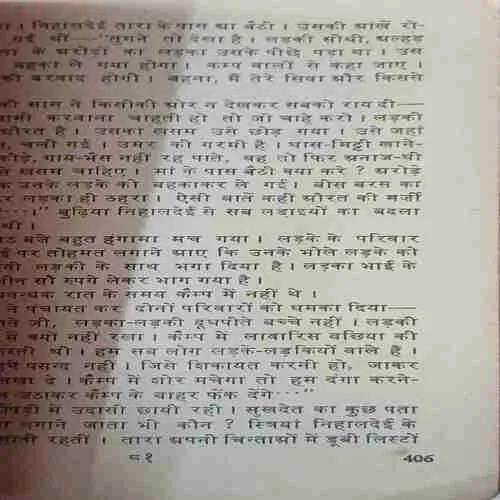 । निहालदेई तारा के पास आ बैठी । उसकी आँखें रो-
गई थीं—"तुमने तो देखा है । लड़की सीधी, अल्हड़
के झरोड़ों का लड़का उसके पीछे पड़ा था । उस
बहका ले गया होगा । कम्प वालों से कहा जाए ।
की बरबाद होगी । बहना, मैं तेरे सिवा और किससे
की सास ने किसीकी ओर न देखकर सबको राय दी—
करवाना चाहती हो तो जो चाहे करो । लड़की
औरत है । उसका खसम उसे छोड़ गया । उसे जहां
चली गई । उमर की गरमी है । घास-मिट्टी खाने-
कोड़े, गाय-भैंस नहीं रह पाते, वह तो फिर अनाज-घी
खसम चाहिए । मां के पास बैठी क्या करे ? झरोड़े
के उनके लड़के को बहकाकर ले गई । बीस बरस का
लड़का ही ठहरा । ऐसी बातें कहीं औरत की मर्जी
···।" बुढ़िया निहालदेई से सब लड़ाइयों का बदला
थी ।
बजे बहुत हंगामा मच गया । लड़के के परिवार
पर तोहमत लगाने आए कि उनके भोले लड़के को
लड़की के साथ भगा दिया है । लड़का भाई के
तीन सौ रुपये लेकर भाग गया है ।
रात के समय कैम्प में नहीं थे ।
ने पंचायत कर दोनों परिवारों को धमका दिया—
जी, लड़का-लड़की दूधपीते बच्चे नहीं । लड़की
से क्यों नहीं रखा । कैम्प में लावारिस बछिया की
थी । हम सब लोग लड़के-लड़कियों वाले हैं ।
पसन्द नहीं । जिसे शिकायत करनी हो, जाकर
दे । कैम्प में शोर मचेगा तो हम दंगा करने-
उठाकर कैम्प के बाहर फेंक देंगे···"
में उदासी छायी रही । सुखदेत का कुछ पता
लगाने जाता भी कौन ? स्त्रियां निहालदेई के
रहतीं । तारा अपनी चिन्ताओं में डूबी लिस्टों
८१
406